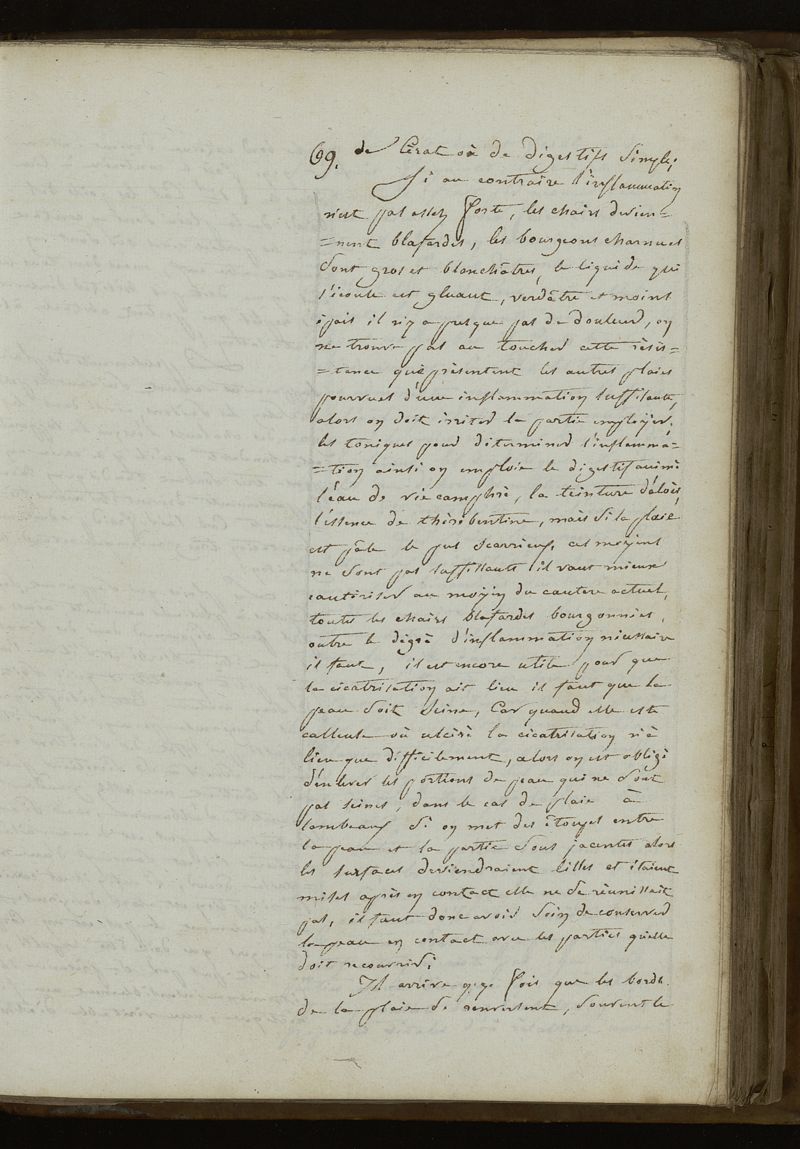 69. de Cérat où de digestifs simples
Si au contraire l'inflammation
n'est pas assez forte, les chairs devien=
=nent blafardes, les bourgeons charnues
sont gros et blanchâtres, le liquide qui
s'écoule est gluant, verdâtre et moins
épais il n'y a presque pas de douleurs, on
ne trouve pas au toucher cette résis=
=tance que présentent les autres plaies
pourvues d'une inflammation suffisante,
alors on doit irriter la partie employer,
les toniques pour déterminer l'inflamma=
=tion ainsi on emploie le digestif animé
l'eau de vie camphré, la teinture d'aloès,
l'éssence de thérébentine, mais si la plaie
est pâle le pus scarrieux, ces moyens
ne sont pas suffisants il vaut mieux
cautériser au moyen du cautere actuel,
toutes les chairs blafardes bourgonnées,
outre le dégré d'inflammation nécessaire
il faut, il est encore utile pour que
la cicatrisation ait lieu il faut que la
peau soit seine, Car quand elle est
calleuse où ulcéré la cicatrisation n'à
lieu que difficilement, alors on est obligé
d'enlever les portions de peau qui ne sont
pas seines, dans le cas de plaie à
lambeaux si on met des étoupes entre
la peau et la partie sous jacentes alors
les surfaces deviendraient lilles et étaient
mises après en contact elle ne se réunissait
pas, il faut donc avoir soin de conserver
la peau en contact avec les parties qu'elle
doit recouvrir;
Il arrive q.q. fois que les bords
de la plaie se renversent, souvent le